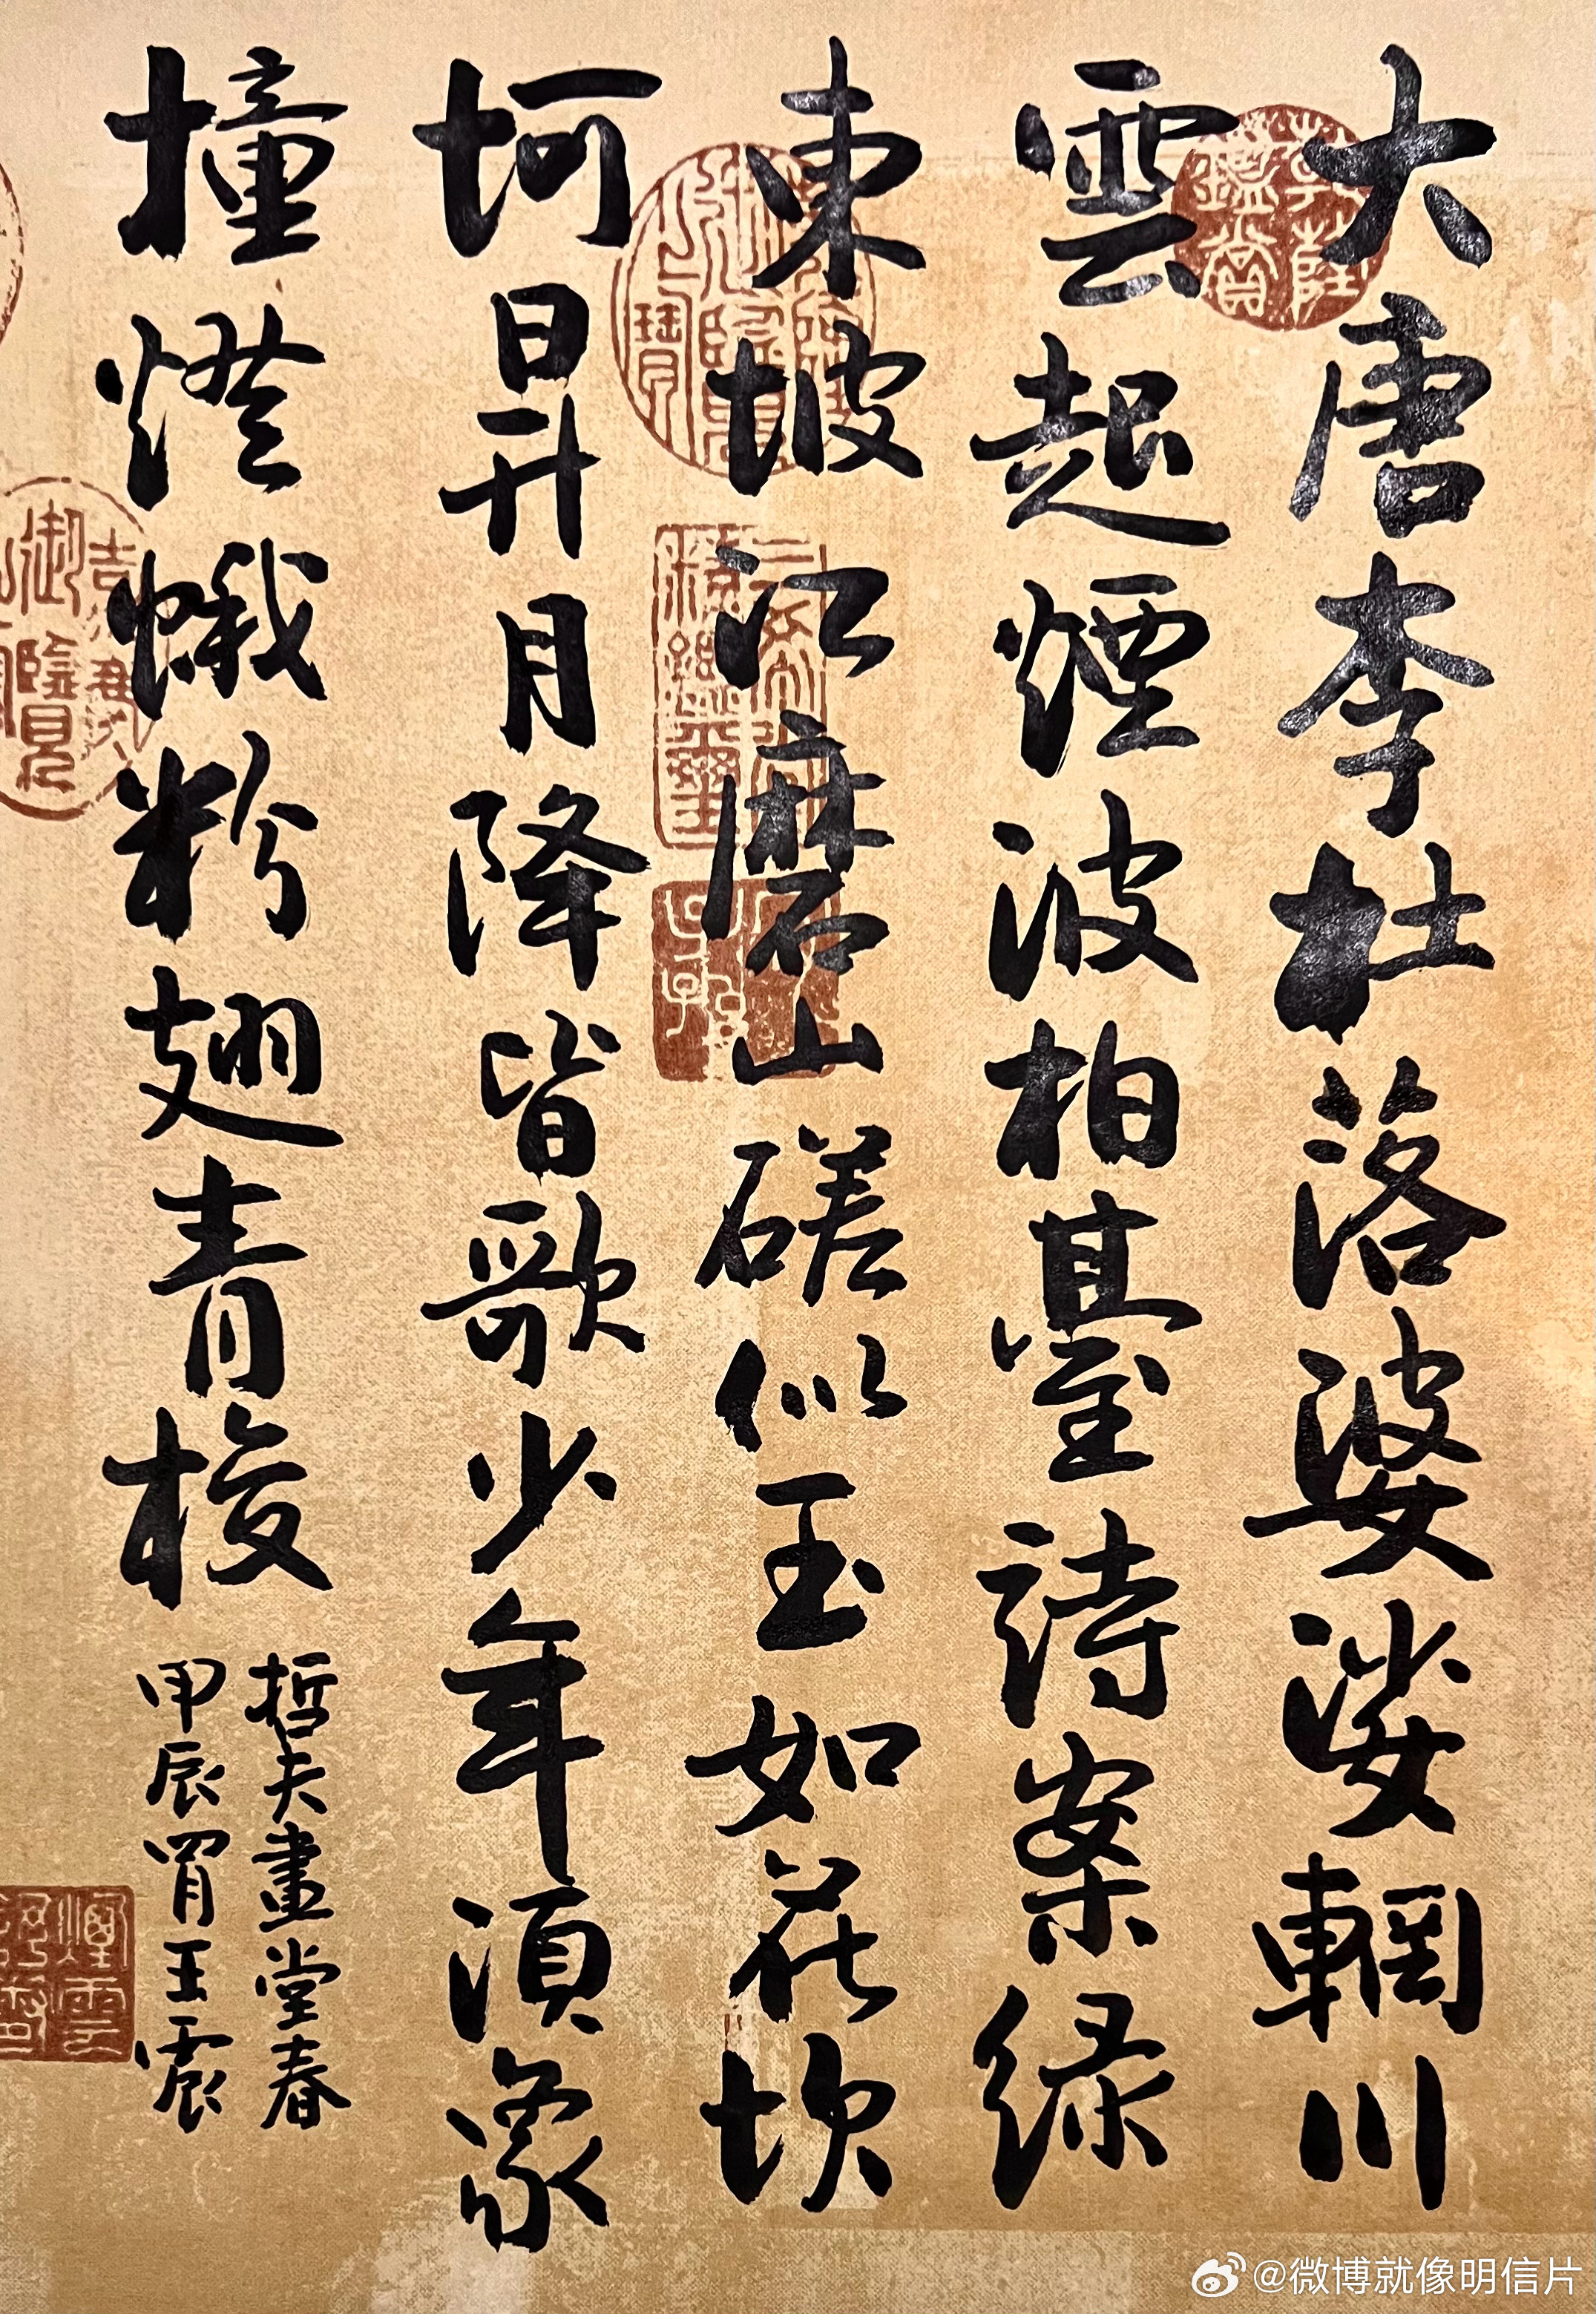 大唐李杜落婆娑輞川
雲起煙波柏臺詩案綠
東坡江磨山磋似玉如花坎
坷日昇月降皆歌少年須象
撞燈蛾粉翅青梭
哲夫畫堂春
甲辰胃王震
@微博就像明信片